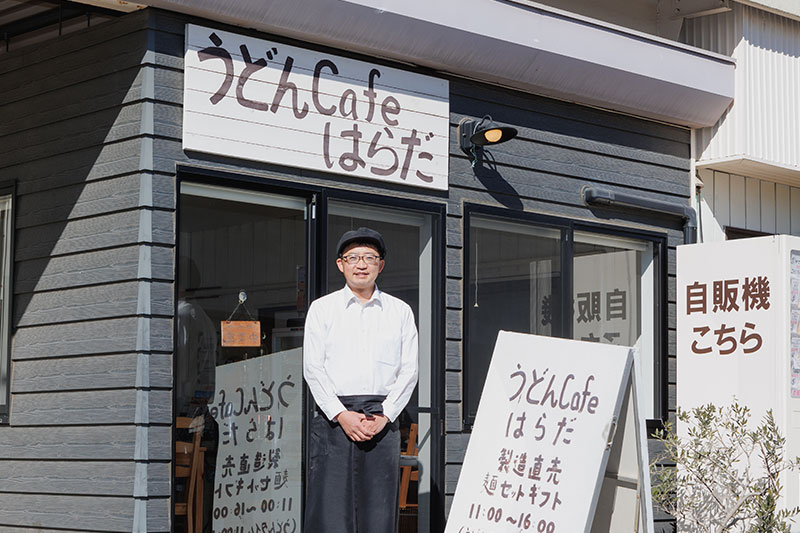 うどんCafe
はらだ
自販機
こちら
うどんCafe
はらだ
製造直売
麺セットギフト
11:00~16:00